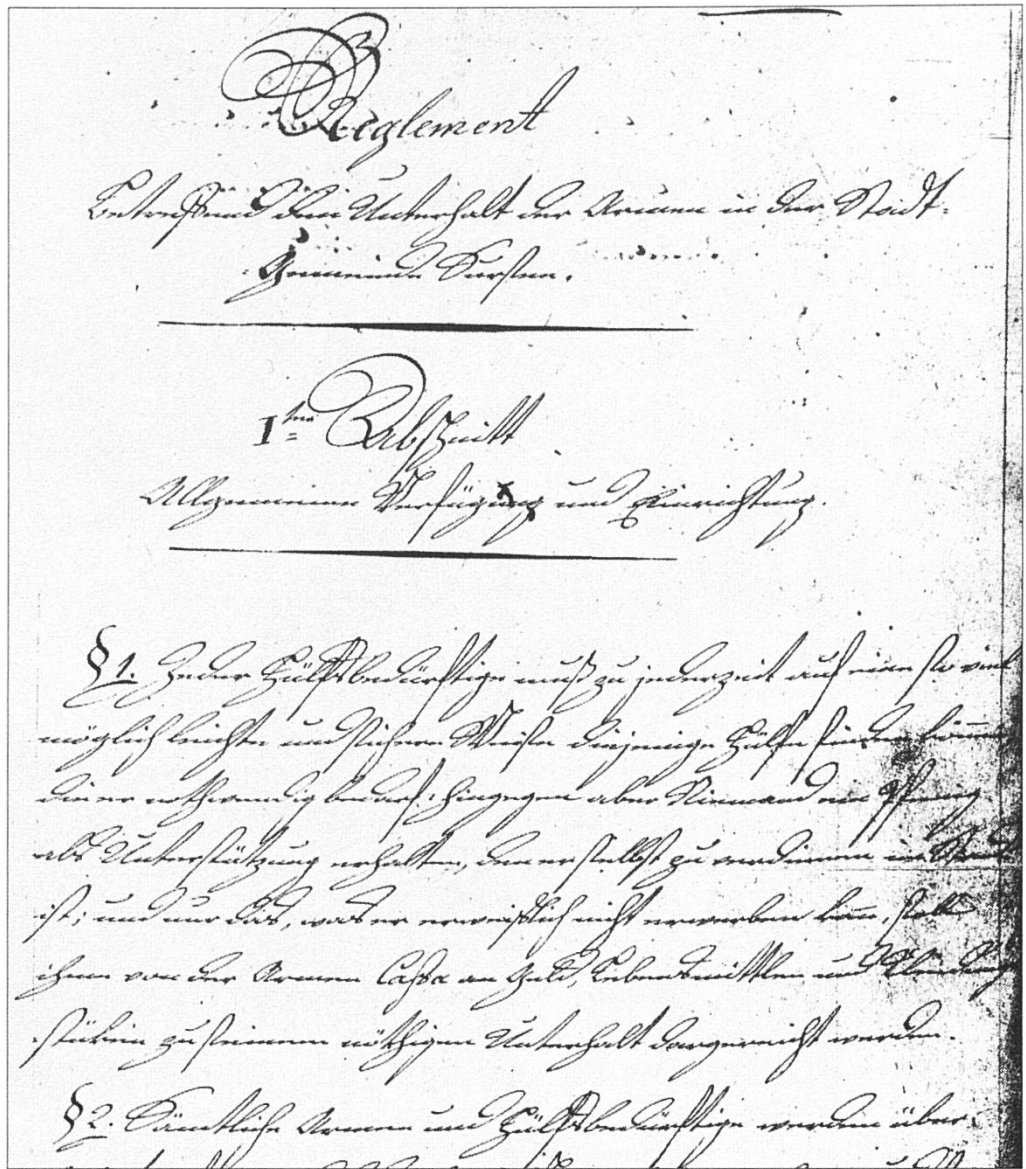 Reglement
Betreffend den Unterhalt der Armen in der Stadt-
Gemeinde Sursee.
I.ter Abschnitt
Allgemeine Verfügung und Einrichtung.
§ 1. Jeder Hülfsbedürftige muß zu jederzeit auf eine so viel
möglich leichte und sichere Weise diejenige Hülfe finden können
die er nothwendig bedarf; hingegen aber Niemand ein Pfening
als Unterstützung erhalten, den er selbst zu verdienen im Stand
ist; und nur das, was er erweißlich nicht erwerben kann, soll
ihm von der Armen Cassa an Geld, Lebensmittlen und Kleidungs
stüken zu seinem nöthigen Unterhalt dargereicht werden.
§ 2. Sämtliche Armen und Hülfsbedürftige werden über-